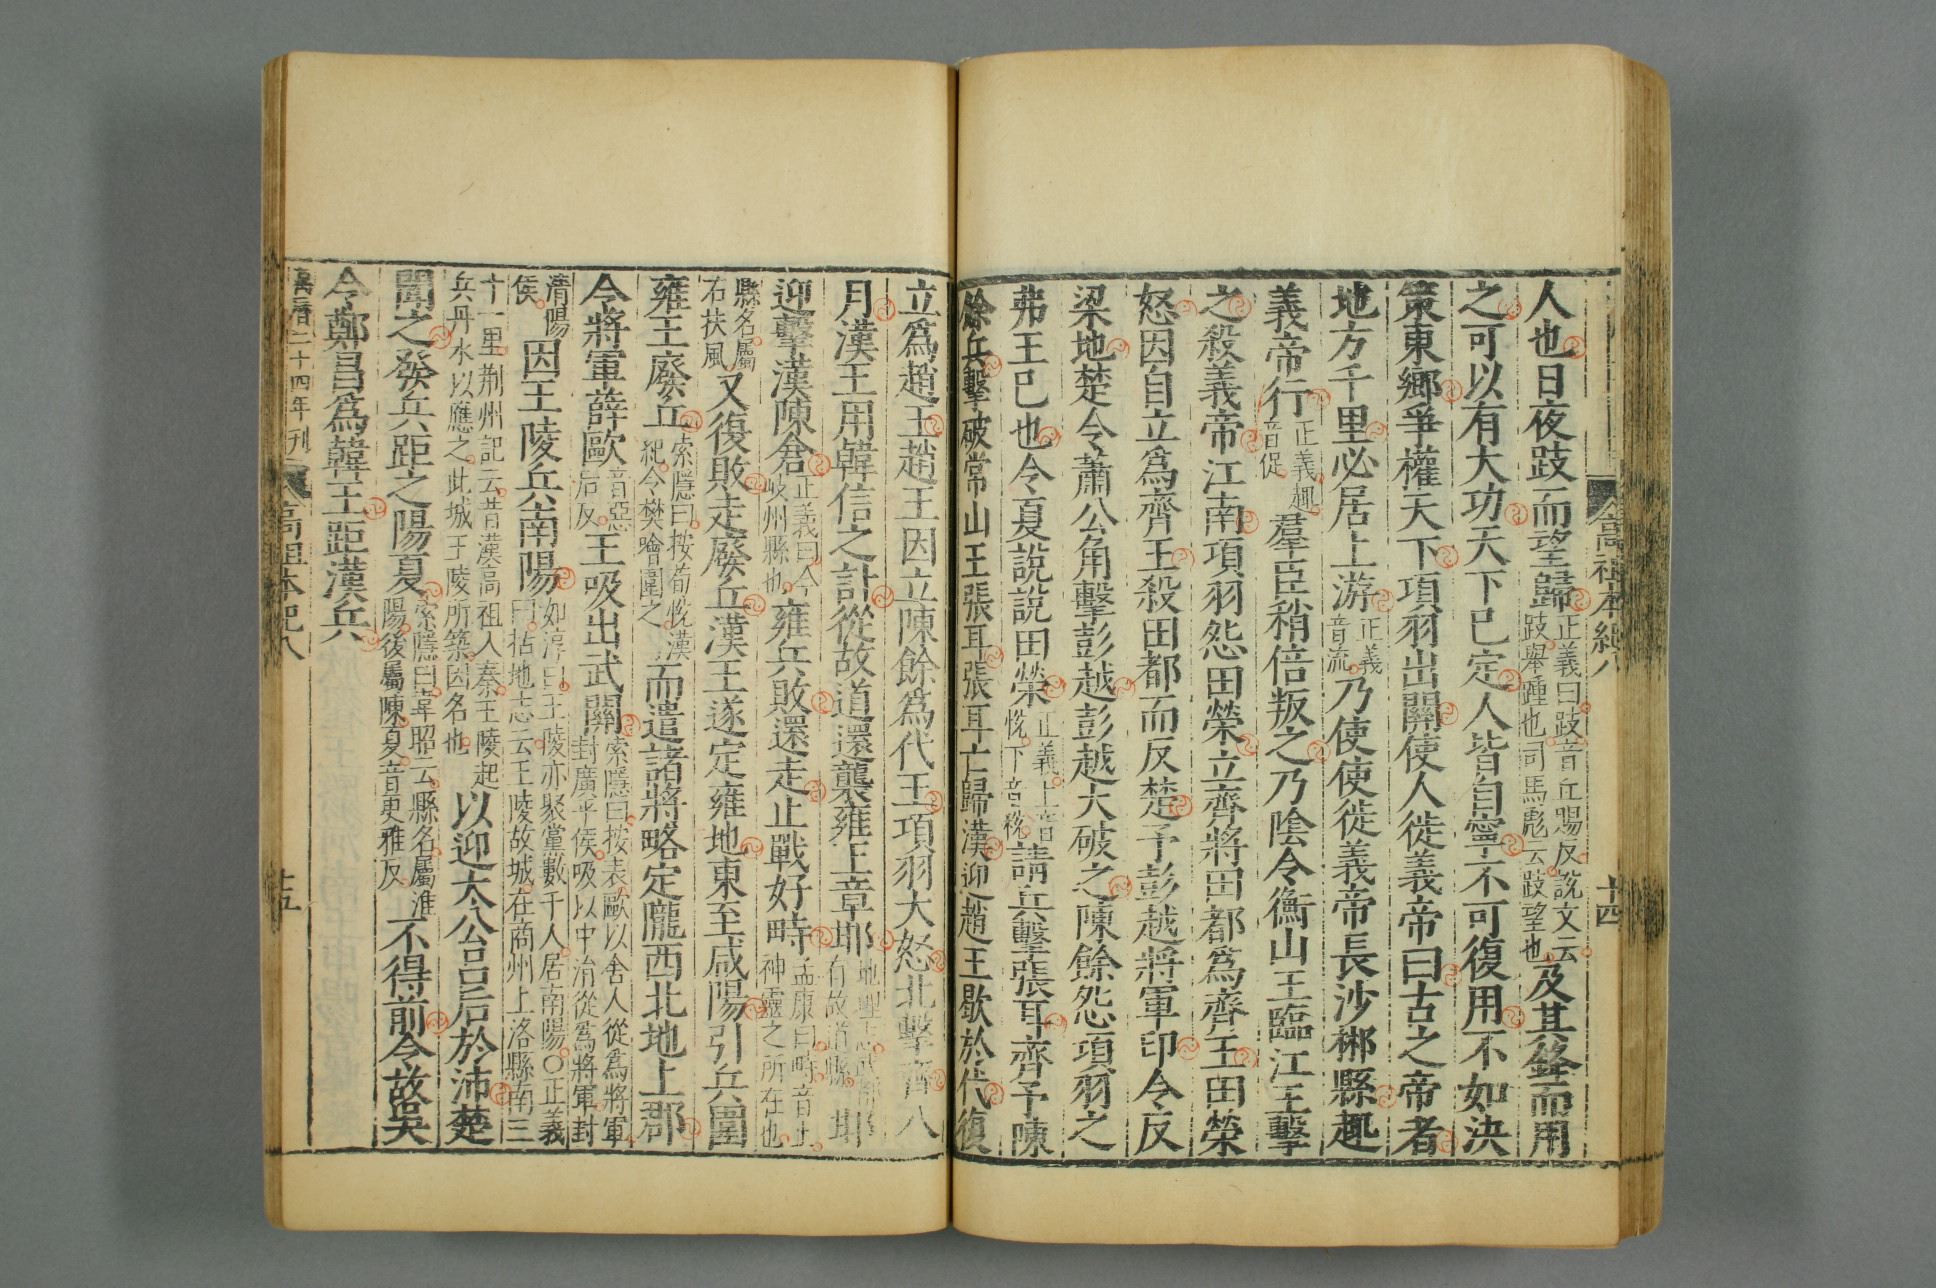 高祖本紀八
十四
人也日夜跂而望歸正義曰跂音丘賜反說文云跂舉踵也司馬彪云跂望也及其鋒而用
之可以有大功天下已定人皆自寧不可復用不如決
策東鄉爭權天下項羽出關使人徙義帝曰古之帝者
地方千里必居上游正義音流乃使使徙義帝長沙郴縣趣
義帝行正義趣音促羣臣稍倍叛之乃陰令衡山王臨江王擊
之殺義帝江南項羽怨田榮立齊將田都為齊王田榮
怒因自立為齊王殺田都而反楚予彭越將軍印令反
梁地楚令蕭公角擊彭越彭越大破之陳餘怨項羽之
弗王已也令夏說說田榮正義上音悅下音稅請兵擊張耳齊予陳
餘兵擊破常山王張耳張耳亡歸漢迎趙王歇於代復
立為趙王趙王因立陳餘為代王項羽大怒北擊齊八
月漢王用韓信之計從故道還襲雍王章邯地理志武都有故道縣邯
迎擊漢陳倉正義曰今岐州縣也雍兵敗還走止戰好畤孟康曰畤音止神靈之所在也
縣名屬右扶風又復敗走廢丘漢王遂定雍地東至咸陽引兵圍
雍王廢丘索隱曰按荀悅漢紀令樊噲圍之而遣諸將略定隴西北地上郡
令將軍薛歐音惡后反王吸出武關索隱曰按表歐以舍人從為將軍封廣平侯吸以中涓從為將軍封
清陽侯因王陵兵南陽如淳曰王陵亦聚黨數千人居南陽〇正義曰括地志云王陵故城在商州上洛縣南三
十一里荊州記云昔漢高祖入秦王陵起兵丹水以應之此城王陵所築因名也以迎太公呂后於沛楚
聞之發兵距之陽夏索隱曰韋昭云縣名屬淮陽後屬陳夏音更雅反不得前令故吳
令鄭昌為韓王距漢兵
萬曆二十四年刊
高祖本紀八
十五